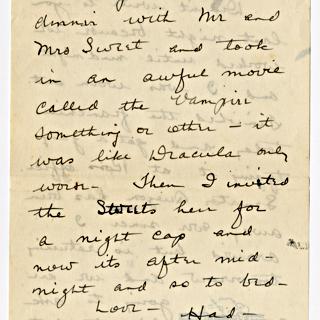 dinner with Mr and
Mrs Sweet and took
in an awful movie
called the Vampire
something or other - it
was like Dracula only
worse - Then I invited
the Sweets here for
a night cap and
now its after mid-
night and so to bed -
Love - Had -